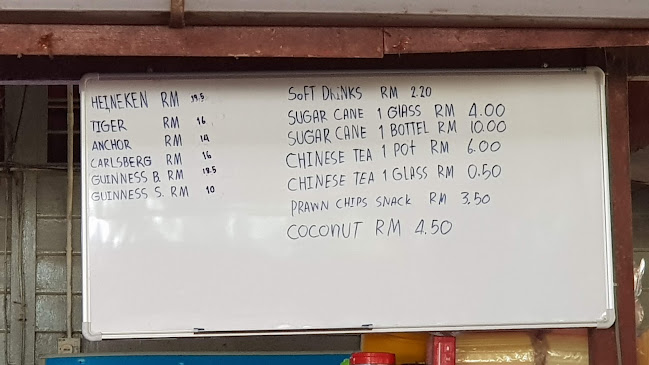 HEINEKEN RM
TIGER RM 16
ANCHOR RM 14
CARLSBERG RM 16
GUINNESS B. RM
GUINNESS S. RM 10
SOFT DRINKS RM 2.20
SUGAR CANE 1 GLASS RM 4.00
SUGAR CANE 1 BOTTEL RM 10.00
CHINESE TEA 1 POT RM 6.00
CHINESE TEA 1 GLASS RM 0.50
PRAWN CHIPS SNACK RM 3.50
COCONUT RM 4.50